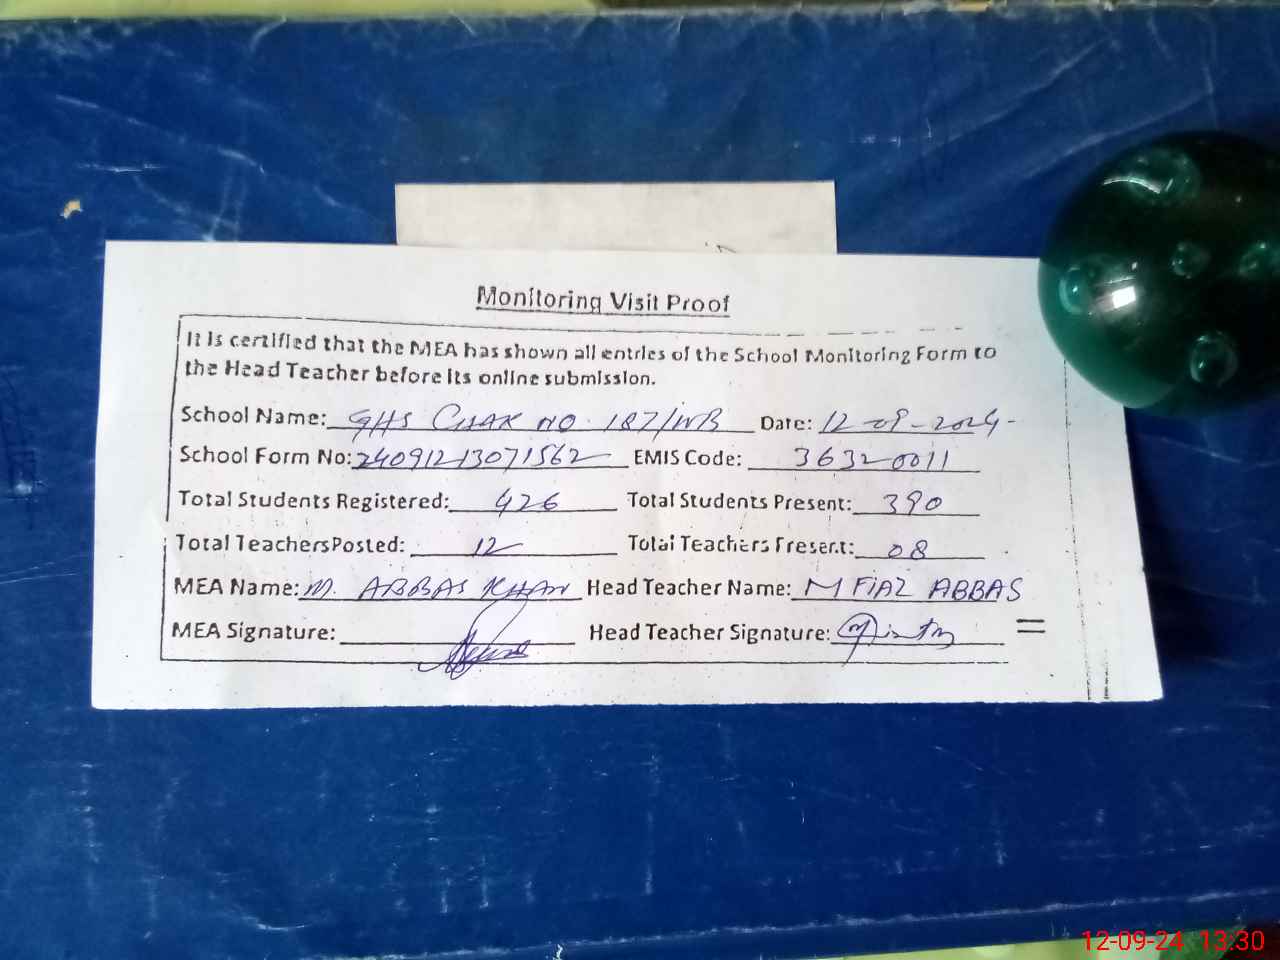 Monitoring Visit Proof
It is certified that the MEA has shown all entries of the School Monitoring Form to
the Head Teacher before its online submission.
School Name: GHS CHAK NO. 187/WB Date: 12-09-2024-
School Form No: 24091213071562 EMIS Code: 36320011
Total Students Registered: 426 Total Students Present: 390
Total Teachers Posted: 12 Total Teachers Present: 08
MEA Name: M. ABBAS KHAN Head Teacher Name: M FIAZ ABBAS
MEA Signature: Head Teacher Signature:
12-09-24 13:30